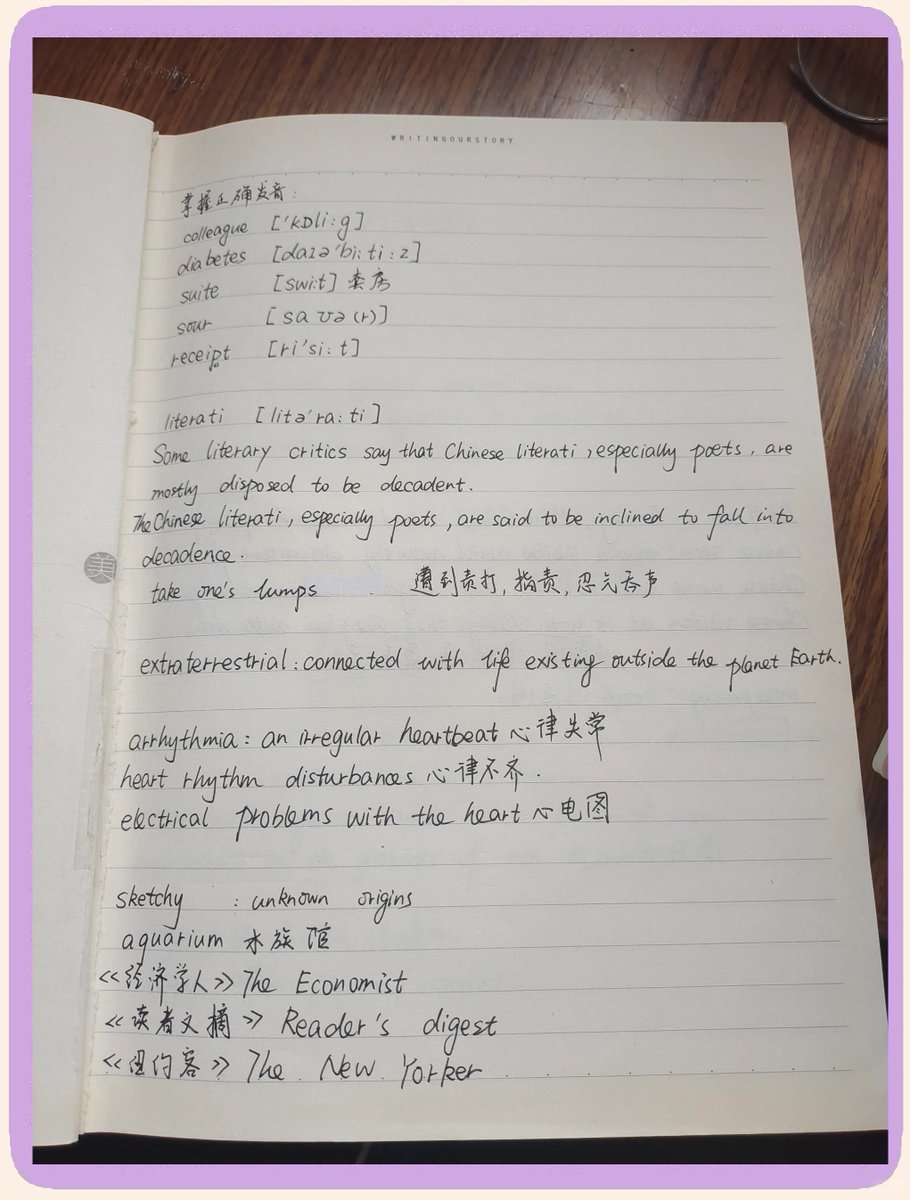 WRITINGOURSTORY
掌握正确发音:
colleague ['kɒli:g]
diabetes [daɪə'bi:ti:z]
suite [swi:t] 套房
sour [saʊə(r)]
receipt [ri'si:t]
literati [litə'ra:ti]
Some literary critics say that Chinese literati, especially poets, are
mostly disposed to be decadent.
The Chinese literati, especially poets, are said to be inclined to fall into
decadence.
美
take one's lumps 遭到责打,指责,忍气吞声
extraterrestrial: connected with life existing outside the planet Earth.
arrhythmia: an irregular heartbeat 心律失常
heart rhythm disturbances 心律不齐.
electrical problems with the heart 心电图
sketchy : unknown origins
aquarium 水族馆
《经济学人》The Economist
《读者文摘》Reader's digest
《纽约客》The New Yorker